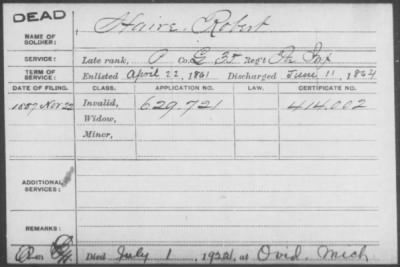 DEAD
NAME OF SOLDIER: Haire, Robert
SERVICE: Late rank, P Co. G 35 Reg't Pa Inf
TERM OF SERVICE: Enlisted April 22, 1861 Discharged June 11, 1864
DATE OF FILING. CLASS. APPLICATION NO. LAW. CERTIFICATE NO.
1887 Nov 22 Invalid, 629.721 414.002
Widow,
Minor,
ADDITIONAL SERVICES:
REMARKS:
Died July 1, 1922, at Ovid, Mich